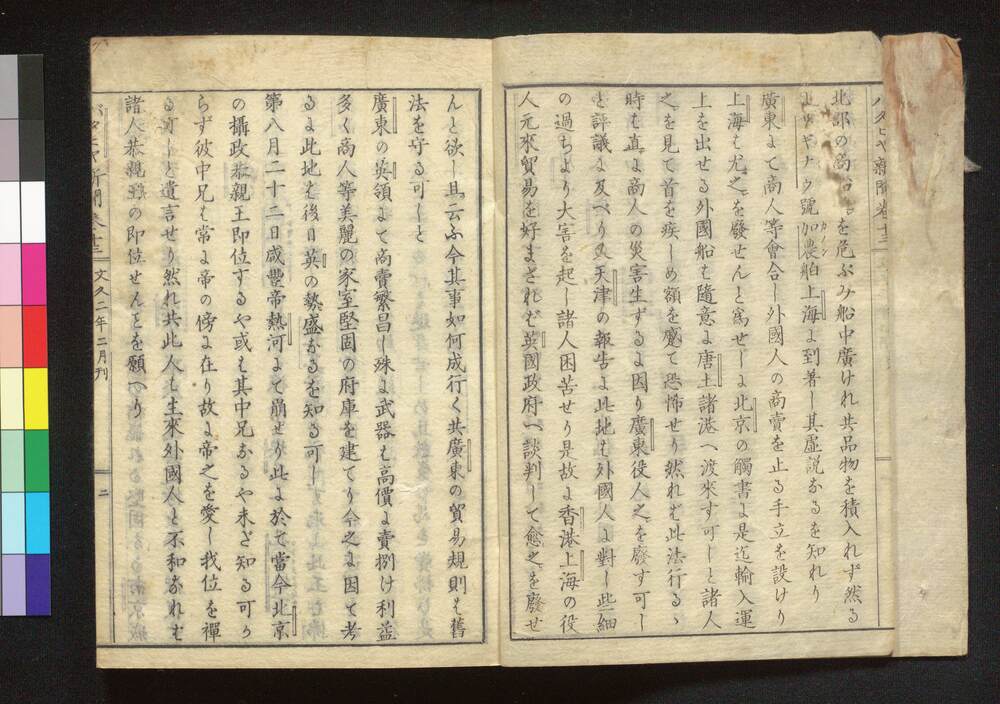 バタヒヤ新聞卷十三
北部の商
を危ぶみ船中廣けれ共品物を積入れず然る
ナク號加農舶上海よ到着し其虚説なるを知れり
カノン
廣東よて商人等會合し外國人の商賣を止る手立を設けり
上海も尤之を發せんと爲せしよ北京の觸書よ是迄輸入運
上を出せる外國船も隨意よ唐土諸港へ渡來す可しと諸人
之を見て首を疾しめ額を蹙て恐怖せり然れども此法行るゝ
時も直よ商人の災害生ずるよ因り廣東役人之を廢す可し
と評議よ及べり又天津の報告よ此地も外國人よ對し些細
の過ちより大害を起し諸人困苦せり是故よ香港上海の役
人元來貿易を好まざれば英國政府へ談判して愈之を廢せ
んと欲し且云ふ今其事如何成行く共廣東の貿易規則も舊
法を守る可しと
廣東の英領よて商賣繁昌し殊よ武器も高價よ賣捌け利益
多く商人等美麗の家室堅固の府庫を建てり今之よ因て考
るよ此地も後日英の勢盛なるを知る可し
第八月二十二日咸豐帝熱河よて崩せり此よ於て當今北京
の攝政恭親王即位するや或も其中兄なるや未だ知る可か
らず彼中兄も常よ帝の傍よ在り故よ帝之を愛し我位を禪
る可しと遺言せり然れ共此人も生來外國人と不和なれも
諸人恭親王の即位せんことを願へり
バタヒヤ新聞卷十三
文久二年二月刊
二